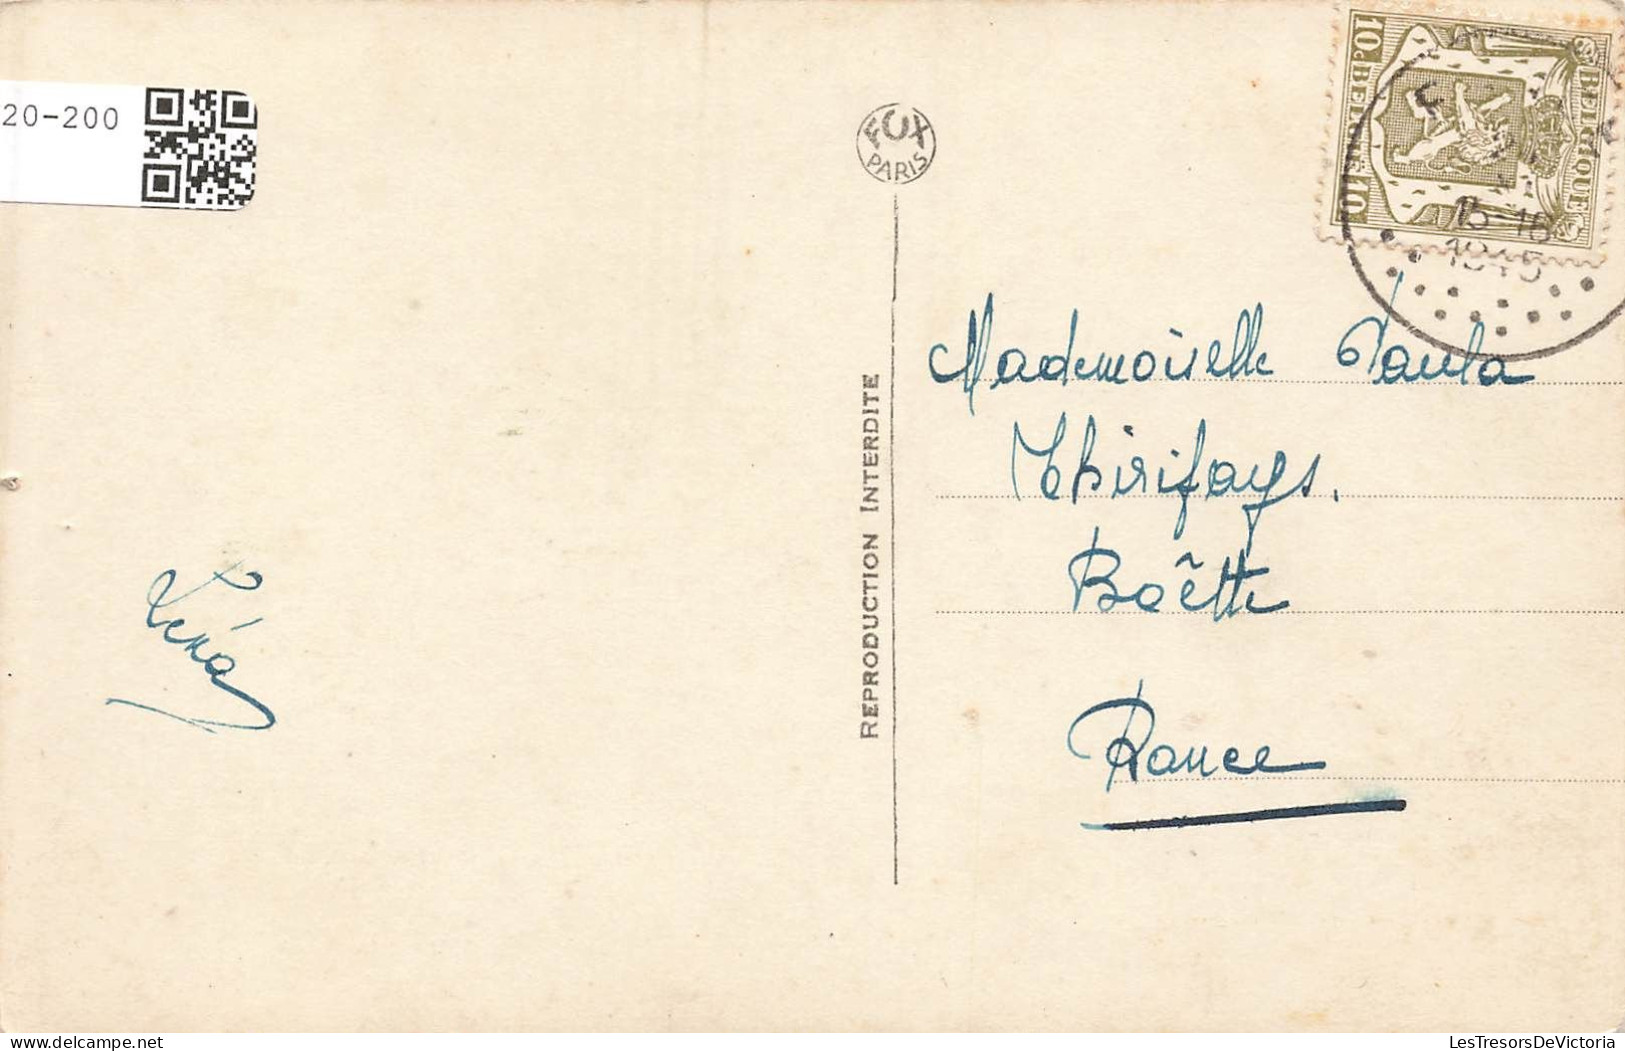 20-200
FOX
PARIS
REPRODUCTION INTERDITE
10c BELGIE 10
BELGIQUE
15-16
1945
Mademoiselle Paula
Thirifays.
Boêtte
Rance
Léna
LesTresorsDeVictoria